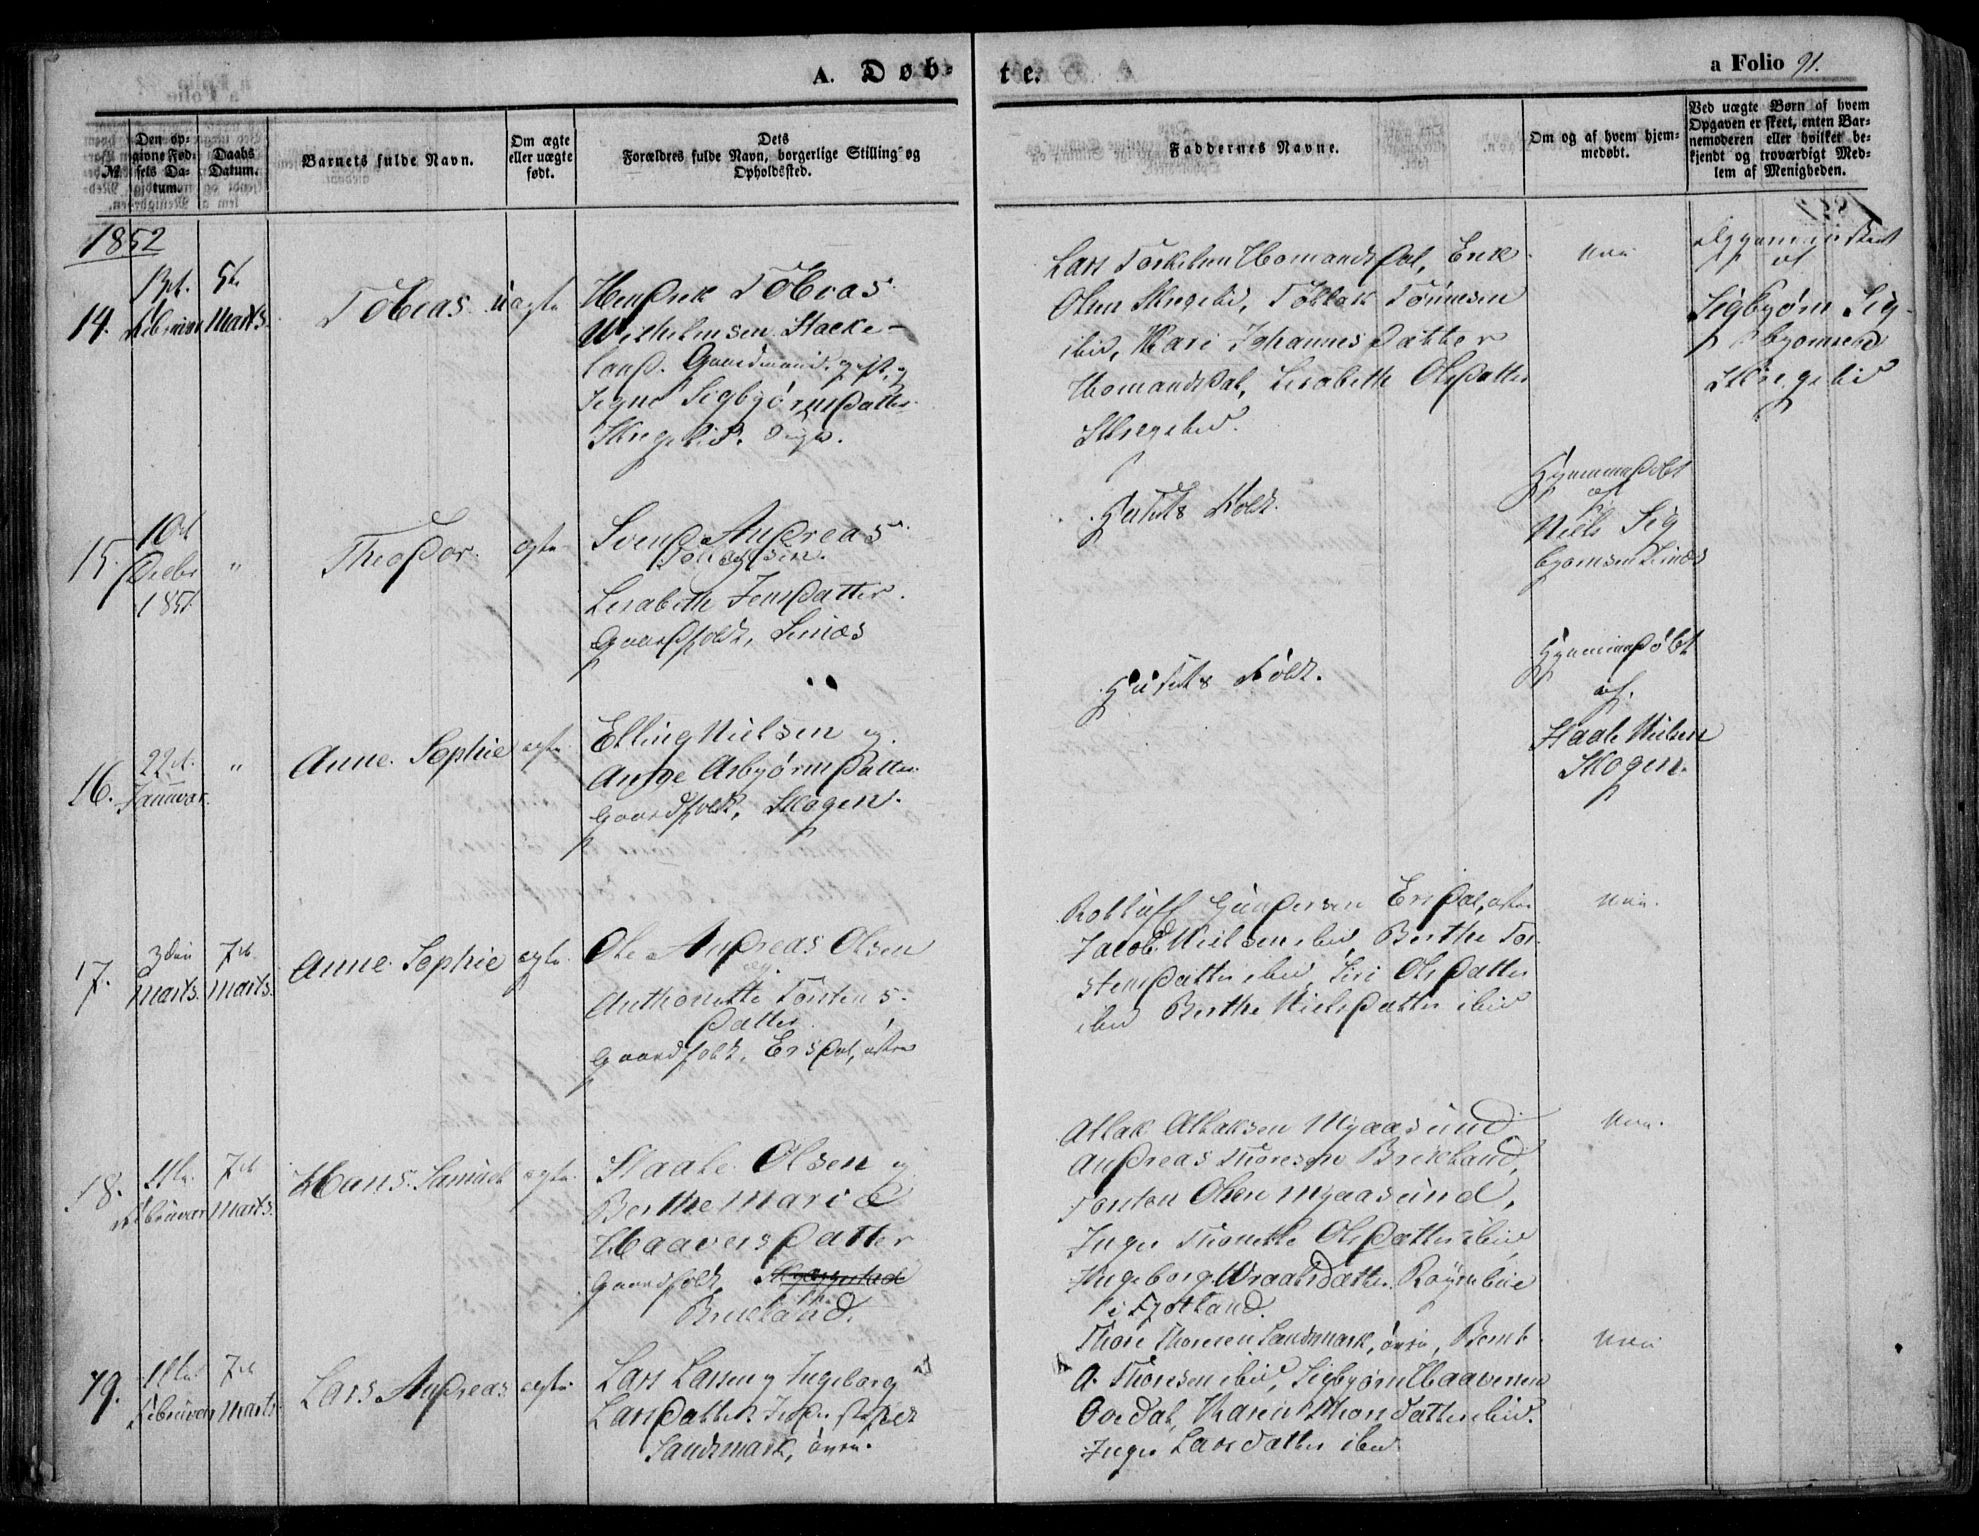 A. Døb-
te.
a Folio 91.
№
Den op-
givne Fød-
sels Da-
tum.
Daabs
Datum.
Barnets fulde Navn.
Om ægte
eller uægte
født.
Dets
Forældres fulde Navn, borgerlige Stilling og
Opholdssted.
Faddernes Navne.
Om og af hvem hjem-
medøbt.
Ved uægte Børn af hvem
Opgaven er skeet, enten Bar-
nemoderen eller hvilket be-
kjendt og troværdigt Med-
lem af Menigheden.
1852
14.
Februar
5te
Marts.
Tobias
uægte
Hendrik Tobias
Wilhelmsen Stacke-
land. Gaardmand, gift, og
Signe Sigbjørnsdatter
Skregelid. Pige.
Homandsdal, Erik
Olsen Skregelid, Tollak Tønnesen
ibid, Mari Johannesdatter
Homandsdal, Lisabeth Olsdatter
Skregelid.
Nei
af
Sigbjørn Sig-
bjørnsen
Skregelid
15.
10de
Decbr
1851
"
Theodor.
ægte
Svend Andreas
Lisabeth Jensdatter.
Gaardfolk, Linæs
Husets Folk.
Hjemmedøbt
af
Niels Sig
bjørnsen Linæs
16.
22de.
Januar.
"
Anne Sophie
ægte
Elling Nielsen og
Asbjørnsdatter
Gaardfolk, Skogen.
Husets Folk.
Hjemmedøbt
af.
Staale Nielsen
Skogen.
17.
3die
Marts.
7de
Marts.
Anne Sophie
ægte
Ole Andreas Olsen
og
Anthonette Torstens-
datter
Gaardfolk, Ersdal, østre
Gundersen Ersdal, østre
Jacob Nielsen ibid, Berthe Tor-
stensdatter ibid, Siri Olsdatter
ibid Berthe Nielsdatter ibid
Nei.
18.
11te
Februar
7de
Marts.
Hans Samuel
ægte.
Staale Olsen og
Berthe Marie
Haaversdatter
Gaardfolk
Brekland.
Atlak Atlaksen Mygaasund
Andreas Thoresen Brekland,
Torsten Olsen Mygaasund,
Inger Thonette Olsdatter ibid,
Ingeborg Wraalsdatter
i Fjotland.
Nei.
19.
11te
Februar
7de
Marts
Lars Andreas
ægte
Lars Larsen og Ingeborg
Larsdatter
Landsmark, øvre.
Thore Thoresen Landsmark, øvre, Bernt
A. Thoresen ibid, Sigbjørn Haaversen
Ovedal, Karen Thorsdatter ibid.
Inger Larsdatter ibid
Nei